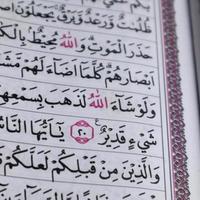 ظُلُمَاتٌ وَرَعْدٌ وَبَرْقٌ يَجْعَلُونَ
حَذَرَ الْمَوْتِ وَاللّٰهُ مُحِيطٌ
اَبْصَارَهُمْ كُلَّمَا اَضَاءَ لَهُمْ
وَلَوْ شَاءَ اللّٰهُ لَذَهَبَ بِسَمْعِهِ
شَيْءٍ قَدِيرٌ ﴿٢٠﴾ يَا اَيُّهَا النَّا
وَالَّذِينَ مِنْ قَبْلِكُمْ لَعَلَّكُمْ